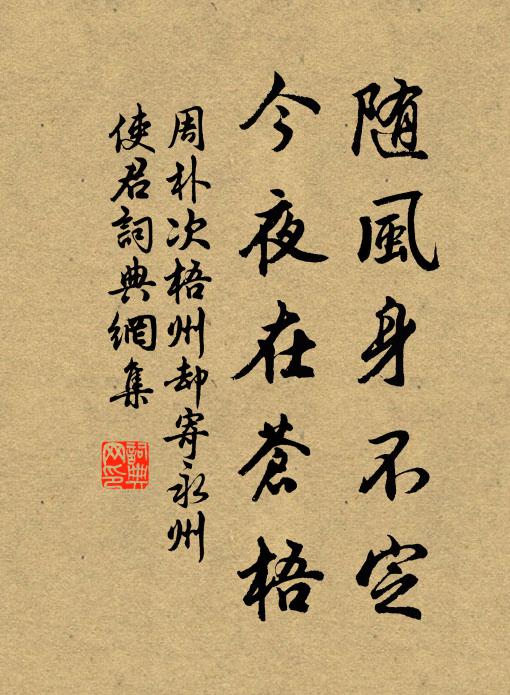 随風身不定
今夜在蒼梧
周朴次梧州却寄永州
使君詞典網集
詞典网印